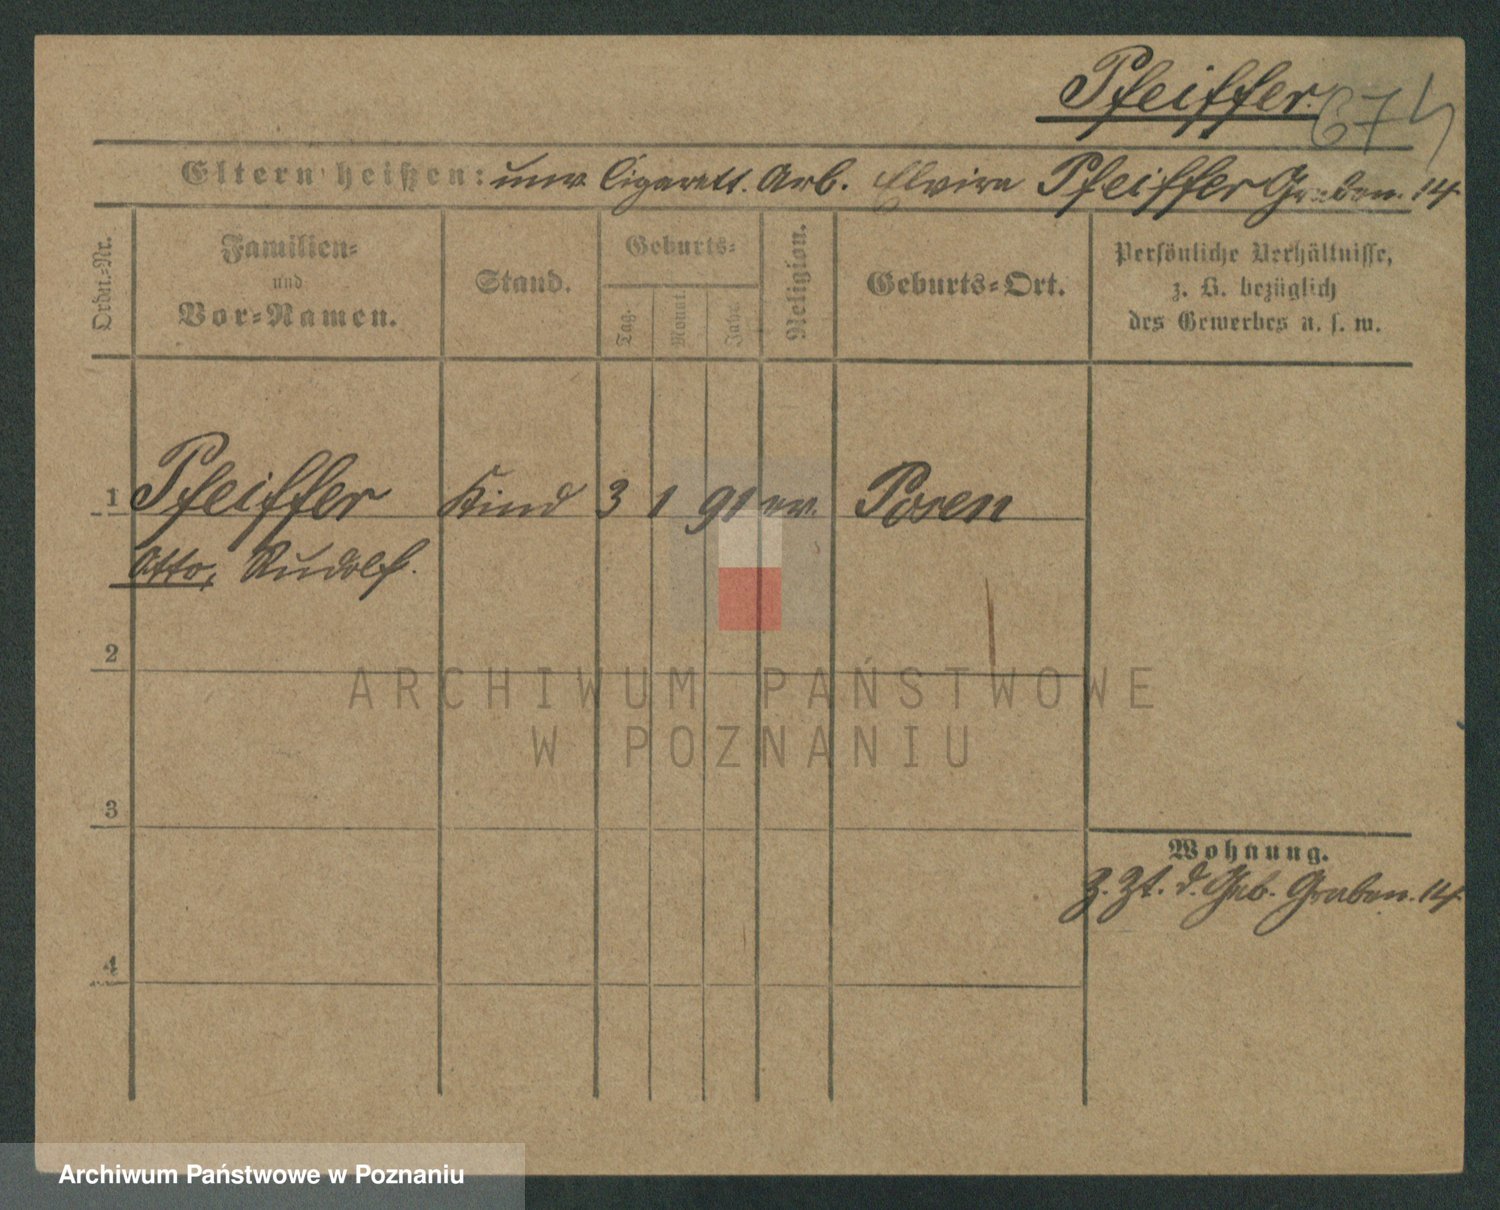 Pfeiffer.
674
Eltern heißen: unv. Cigarett. Arb. Elvira Pfeiffer Graben. 14
Ordn.-Nr.
Familien-
und
Vor-Namen.
Stand.
Geburts-
Tag.
Monat.
Jahr.
Religion.
Geburts-Ort.
Persönliche Verhältnisse,
z. B. bezüglich
des Gewerbes u. s. w.
1 Pfeiffer Kind 3 1 91 ev. Posen
Otto, Rudolf.
2
ARCHIWUM PAŃSTWOWE
W POZNANIU
3
Wohnung.
Z. Zt. d. Geb. Graben. 14
4
Archiwum Państwowe w Poznaniu